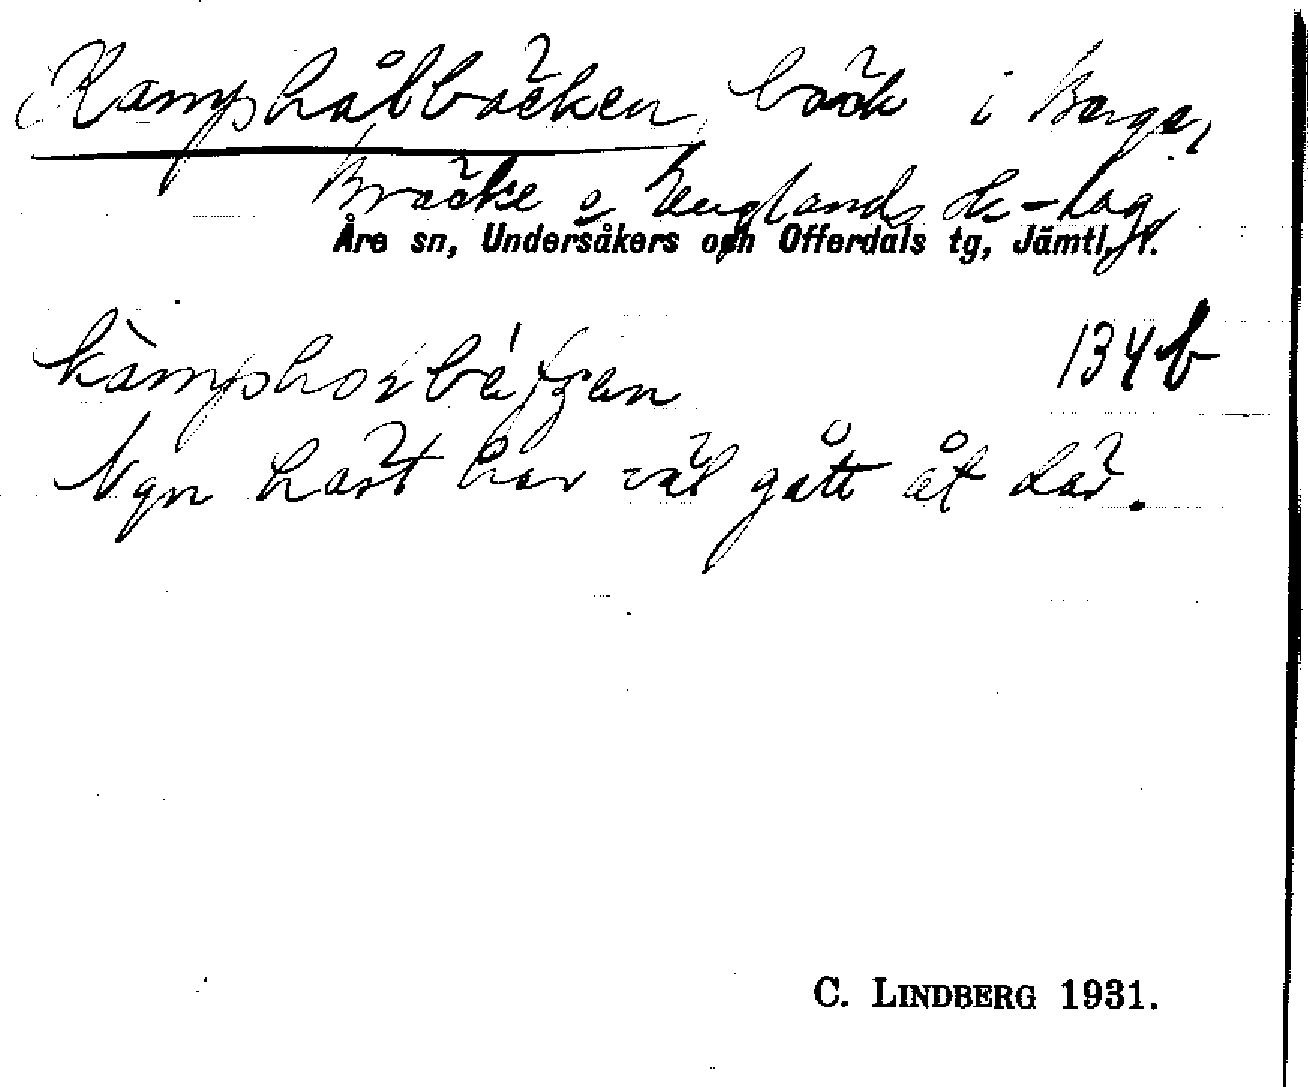 Kamphålbäcken, bäck i Berge,
Bräcke o Englands sk-lag,
Åre sn, Undersåkers och Offerdals tg, Jämtl. l.
134 b
Ngn häst har väl gått åt där.
C. LINDBERG 1931.